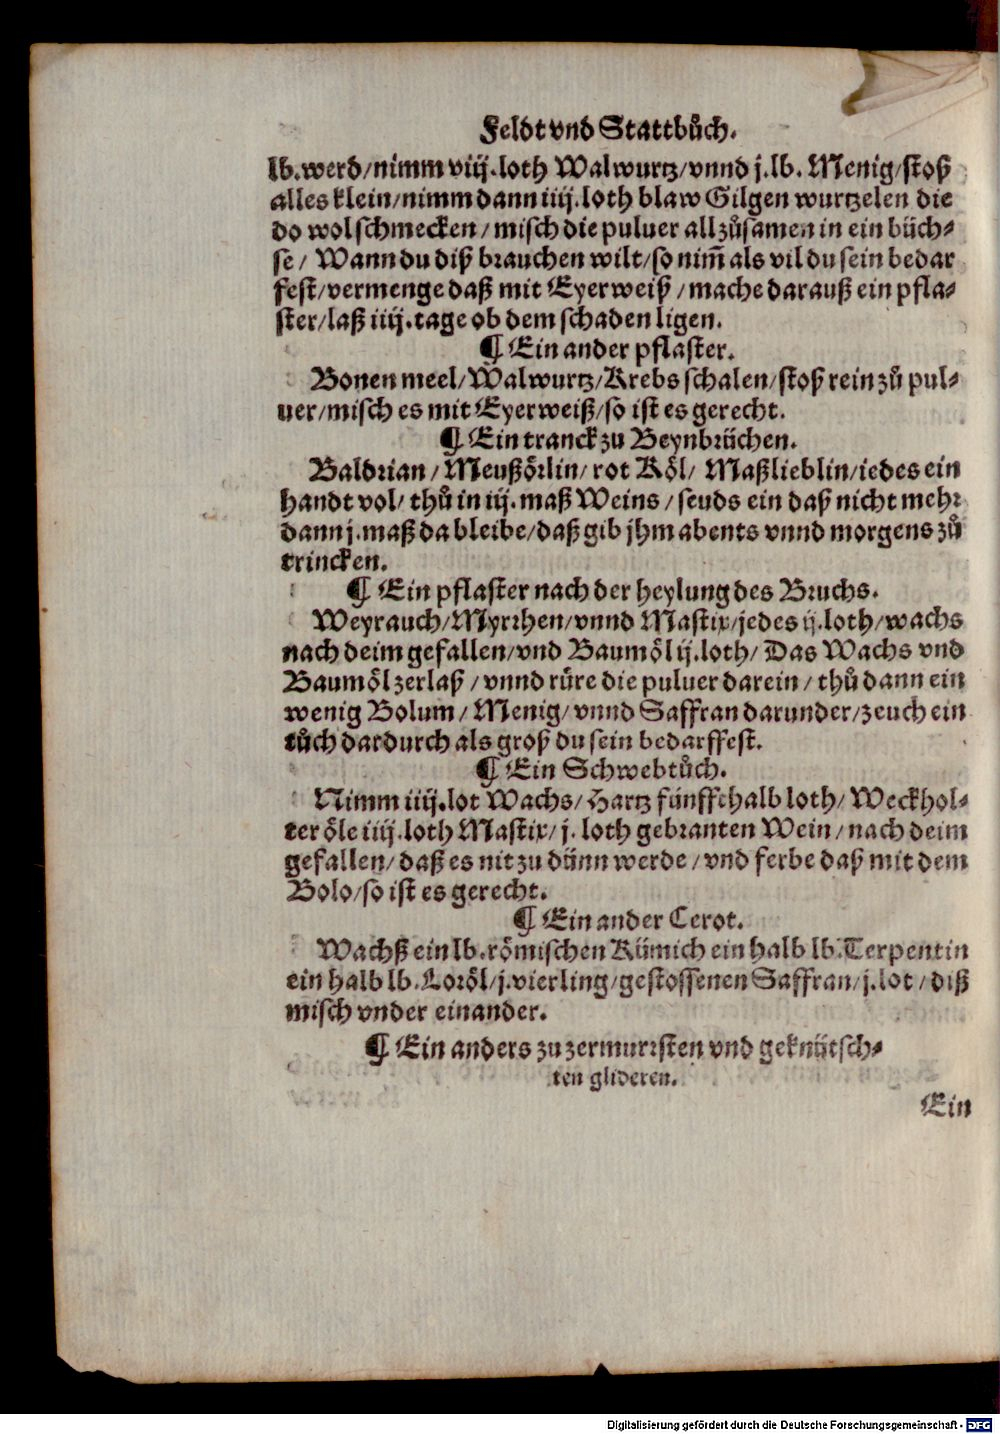 Feldt vnd Stattbuͦch.
lb. werd/nimm viij. loth Walwurtz/vnnd j. lb. Menig/stoß
alles klein/nimm dann iiij. loth blaw Gilgen wurtzelen die
do wolschmecken/misch die puluer all zuͦsamen in ein büch⸗
se/ Wann du diß brauchen wilt/so nim̃ als vil du sein bedar
fest/vermenge daß mit Eyerweiß/mache darauß ein pfla⸗
ster/laß iiij. tage ob dem schaden ligen.
¶ Ein ander pflaster.
Bonen meel/Walwurtz/Krebs schalen/stoß rein zuͦ pul⸗
uer/misch es mit Eyerweiß/so ist es gerecht.
¶ Ein tranck zu Beynbrüchen.
Baldrian/Meußörlin/rot Köl/ Maßlieblin/iedes ein
handt vol/thuͦ in iij. maß Weins/seuds ein daß nicht mehr
dann j. maß da bleibe/daß gib jhm abents vnnd morgens zuͦ
trincken.
¶ Ein pflaster nach der heylung des Bruchs.
Weyrauch/Myrrhen/vnnd Mastix/jedes ij. loth/wachs
nach deim gefallen/vnd Baumöl ij. loth/ Das Wachs vnd
Baumöl zerlaß/vnnd ruͤre die puluer darein/thuͦ dann ein
wenig Bolum/Menig/vnnd Saffran darunder/zeuch ein
tuͦch dardurch als groß du sein bedarffest.
¶ Ein Schwebtuͦch.
Nimm iiij. lot Wachs/Hartz fünffthalb loth/Weckhol⸗
ter öle iiij. loth Mastix/j. loth gebranten Wein/nach deim
gefallen/daß es nit zu dünn werde/vnd ferbe daß mit dem
Bolo/so ist es gerecht.
¶ Ein ander Cerot.
Wachß ein lb. römischen Kümich ein halb lb. Terpentin
ein halb lb. Loröl/j. vierling/gestossenen Saffran/j. lot/diß
misch vnder einander.
¶ Ein anders zu zermurrsten vnd geknütsch⸗
ten glideren.
Ein
Digitalisierung gefördert durch die Deutsche Forschungsgemeinschaft - DFG